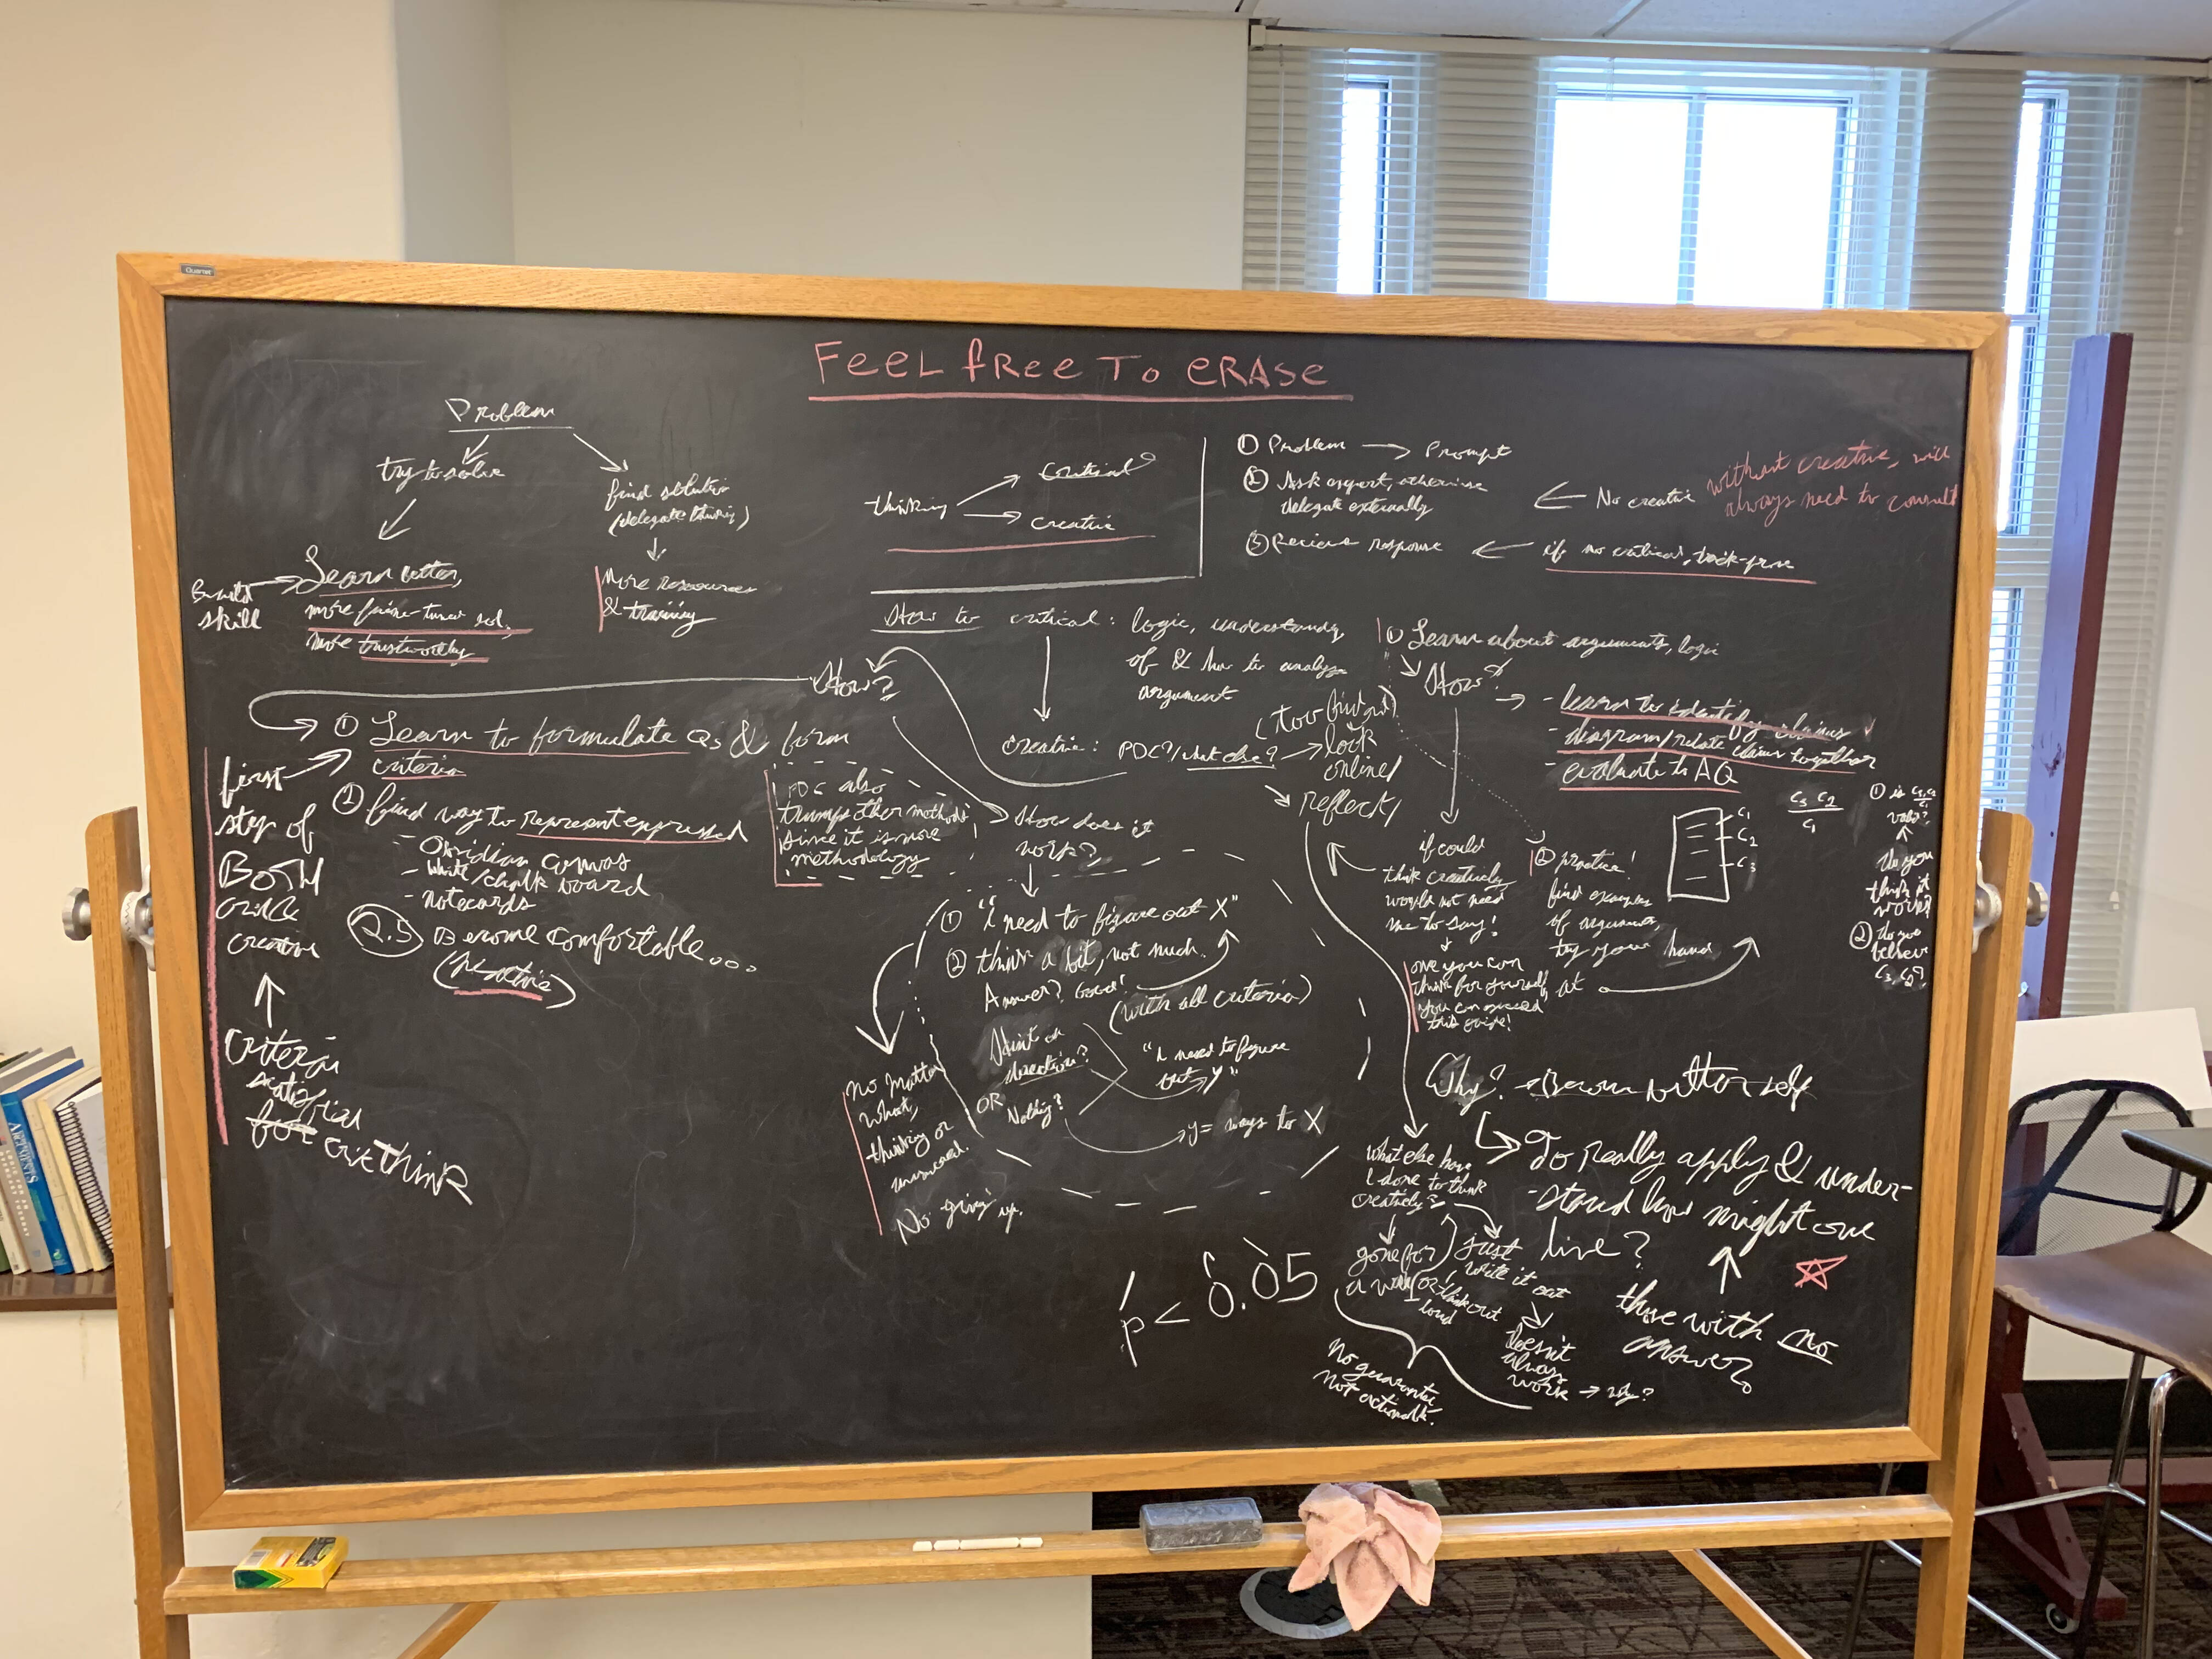 Quartet
FEEL fREE To ERASE
Problem
try to solve
find solution
(delegate thinking)
Learn better,
more fine-tuned sol,
more trustworthy
Build
skill
More resources
& training
thinking
critical
creative
① Problem → Prompt
② Ask expert, otherwise
delegate externally
③ Receive response
← No creative
without creative, will
always need to consult
← if no critical,
How to critical: logic, understanding
of & how to analyze
argument
① Learn about arguments, logic
How?
→ - learn to identify claims
- diagram/relate claims together
- evaluate to AQ
How?
creative: PDC?/what else? →
look
online/
reflect/
① Learn to formulate Qs & form
criteria
② find way to represent expressed
- Obsidian canvas
- White/chalk board
- notecards
2.5 Become comfortable...
(practice)
first
step of
BOTH
crit &
creative
↑
Criteria
satisfied
for critTHINK
PDC also
trumps other methods
since it is more
methodology
How does it
work?
① "I need to figure out X"
② think a bit, not much.
Answer? Good!
(with all criteria)
Hint or
direction?
OR Nothing?
"I need to figure
out y"
y = ways to X
No Matter
What,
thinking or
No giving up.
if could
think creatively
would not need
me to say!
once you can
think for yourself,
you can exceed
this guide!
② practice!
find examples
of arguments,
try your hand
at
C1
C2
C3
C3 C2
C1
① is C3, C2
C1
valid?
↑
Do you
think it
works?
② Do you
believe
C3, C2?
Why? → Become better self
To Really apply & under-
stand how might one
live?
↑
those with no
answer
What else have
I done to think
creatively?
gone for
a walk
just
write it out
or think out
loud
doesn't
always
work → why?
no guarantee,
not actionable.
p < 0.05